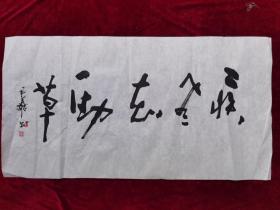 疾风知勁草